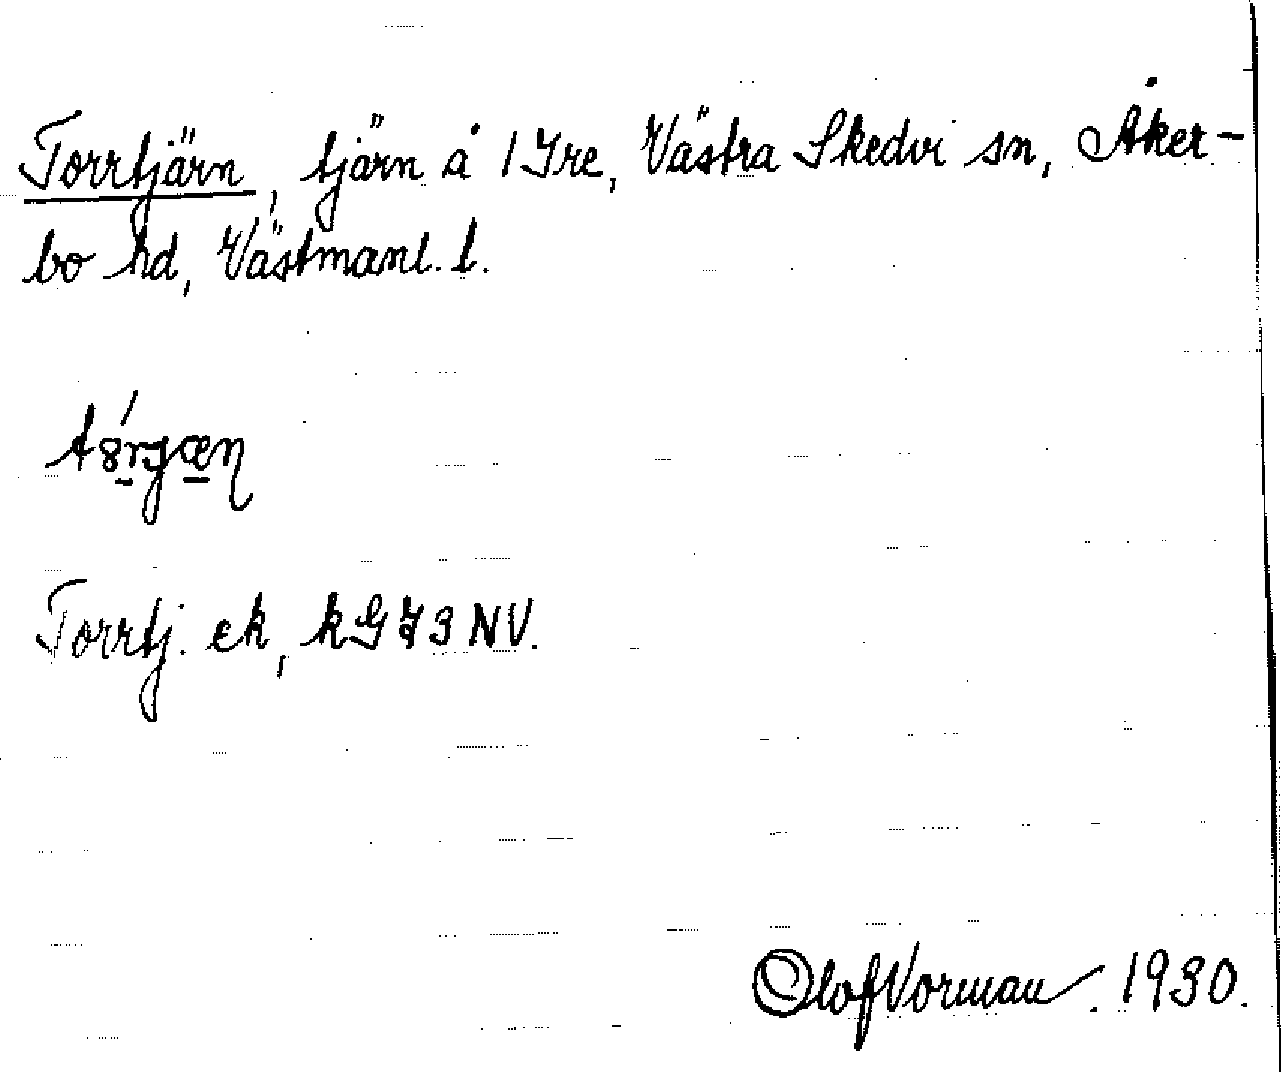 Torrtjärn, tjärn å 1 Yre, Västra Skedvi sn, Åker-
bo hd, Västmanl. l.
Torrtj. ek, k G 73 NV.
Olof Vorman. 1930.